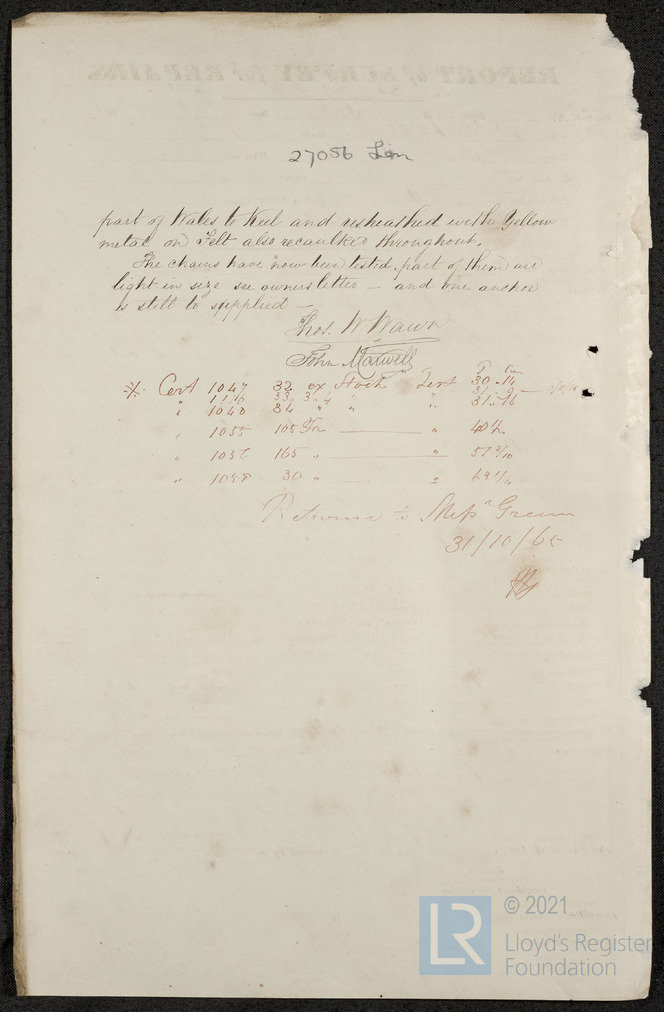 27056 Lon
part of Wales to Keel and resheathed with Yellow
metal on Felt also recaulked throughout.
The chains have now been tested, part of them are
light in size see owners letter – and one anchor
is still to supplied –
Thos. W Wawn
John Maxwell
T Cw
Cert 1047 32 ex Stock Test 30.14
1116 33.3.4 "
" 1048 34 " " " 31.16
" 1055 105 Fm " 40
" 1056 165 " " 51 2/10
" 1058 30 "
Returned to Messrs Green
31/10/65
© 2021
LR
Lloyd's Register
Foundation